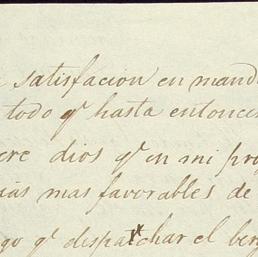 satisfacion en mand
todo q̃ hasta entonces
ere dios q̃ en mi pro
ias mas favorables de
go q̃ despachar el berg